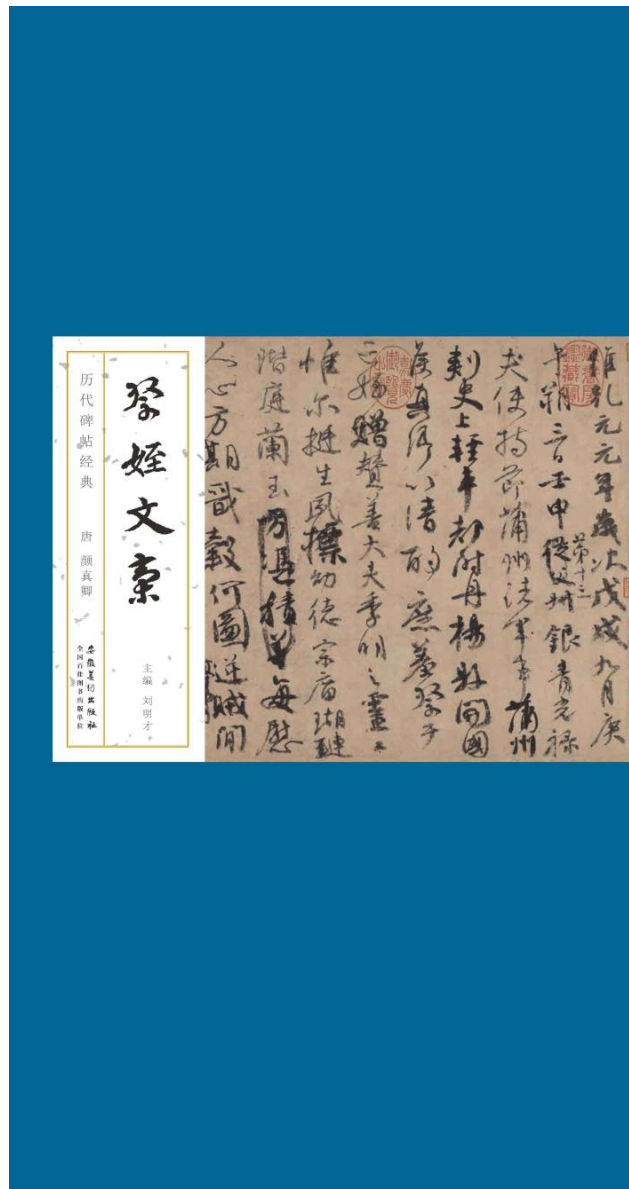 历代碑帖经典 唐 颜真卿
祭姪文稾
主编 刘明才
安徽美术出版社
全国百佳图书出版单位
維乾元元年歲次戊戌九月庚
午朔三日壬申第十三從父銀青光禄
夫使持節蒲州諸軍事蒲州
刺史上輕車都尉丹楊縣開國
侯真卿以清酌庶羞祭于
亡姪贈贊善大夫季明之靈
惟爾挺生夙標幼德宗廟瑚璉
階庭蘭玉每慰
人心方期戩穀何圖逆賊閒